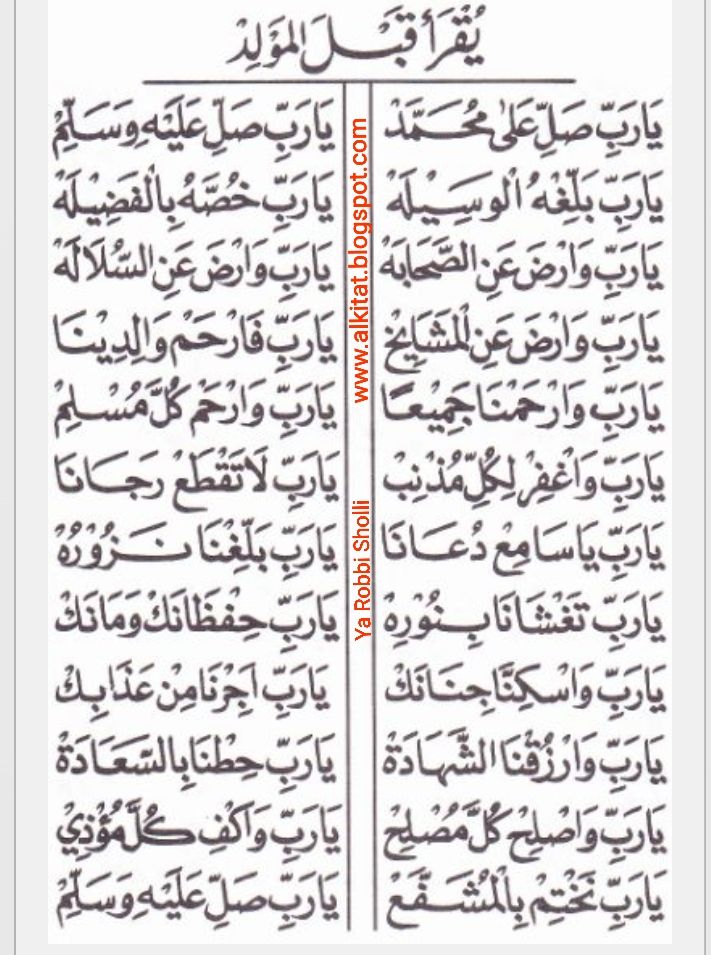 يُقْرَأُ قَبْلَ الْمَوْلِدْ
يَارَبِّ صَلِّ عَلٰى مُحَمَّدْ يَارَبِّ صَلِّ عَلَيْهِ وَسَلِّمْ
يَارَبِّ بَلِّغْهُ الْوَسِيْلَهْ يَارَبِّ خُصَّهُ بِالْفَضِيْلَهْ
يَارَبِّ وَارْضَ عَنِ الصَّحَابَهْ يَارَبِّ وَارْضَ عَنِ السُّلَالَهْ
يَارَبِّ وَارْضَ عَنِ الْمَشَايِخْ يَارَبِّ فَارْحَمْ وَالِدِيْنَا
يَارَبِّ وَارْحَمْنَا جَمِيْعًا يَارَبِّ وَارْحَمْ كُلَّ مُسْلِمْ
يَارَبِّ وَاغْفِرْ لِكُلِّ مُذْنِبْ يَارَبِّ لَا تَقْطَعْ رَجَانَا
يَارَبِّ يَاسَامِعْ دُعَانَا يَارَبِّ بَلِّغْنَا نَزُوْرُهْ
يَارَبِّ تَغْشَانَا بِنُوْرِهْ يَارَبِّ حِفْظَانَكْ وَمَانَكْ
يَارَبِّ وَاسْكِنَّا جِنَانَكْ يَارَبِّ اَجِرْنَا مِنْ عَذَابِكْ
يَارَبِّ وَارْزُقْنَا الشَّهَادَةْ يَارَبِّ حِطْنَا بِالسَّعَادَةْ
يَارَبِّ وَاصْلِحْ كُلَّ مُصْلِحْ يَارَبِّ وَاكْفِ كُلَّ مُؤْذِيْ
يَارَبِّ نَخْتِمْ بِالْمُشَفَّعْ يَارَبِّ صَلِّ عَلَيْهِ وَسَلِّمْ
Ya Robbi Sholli www.alkitat.blogspot.com